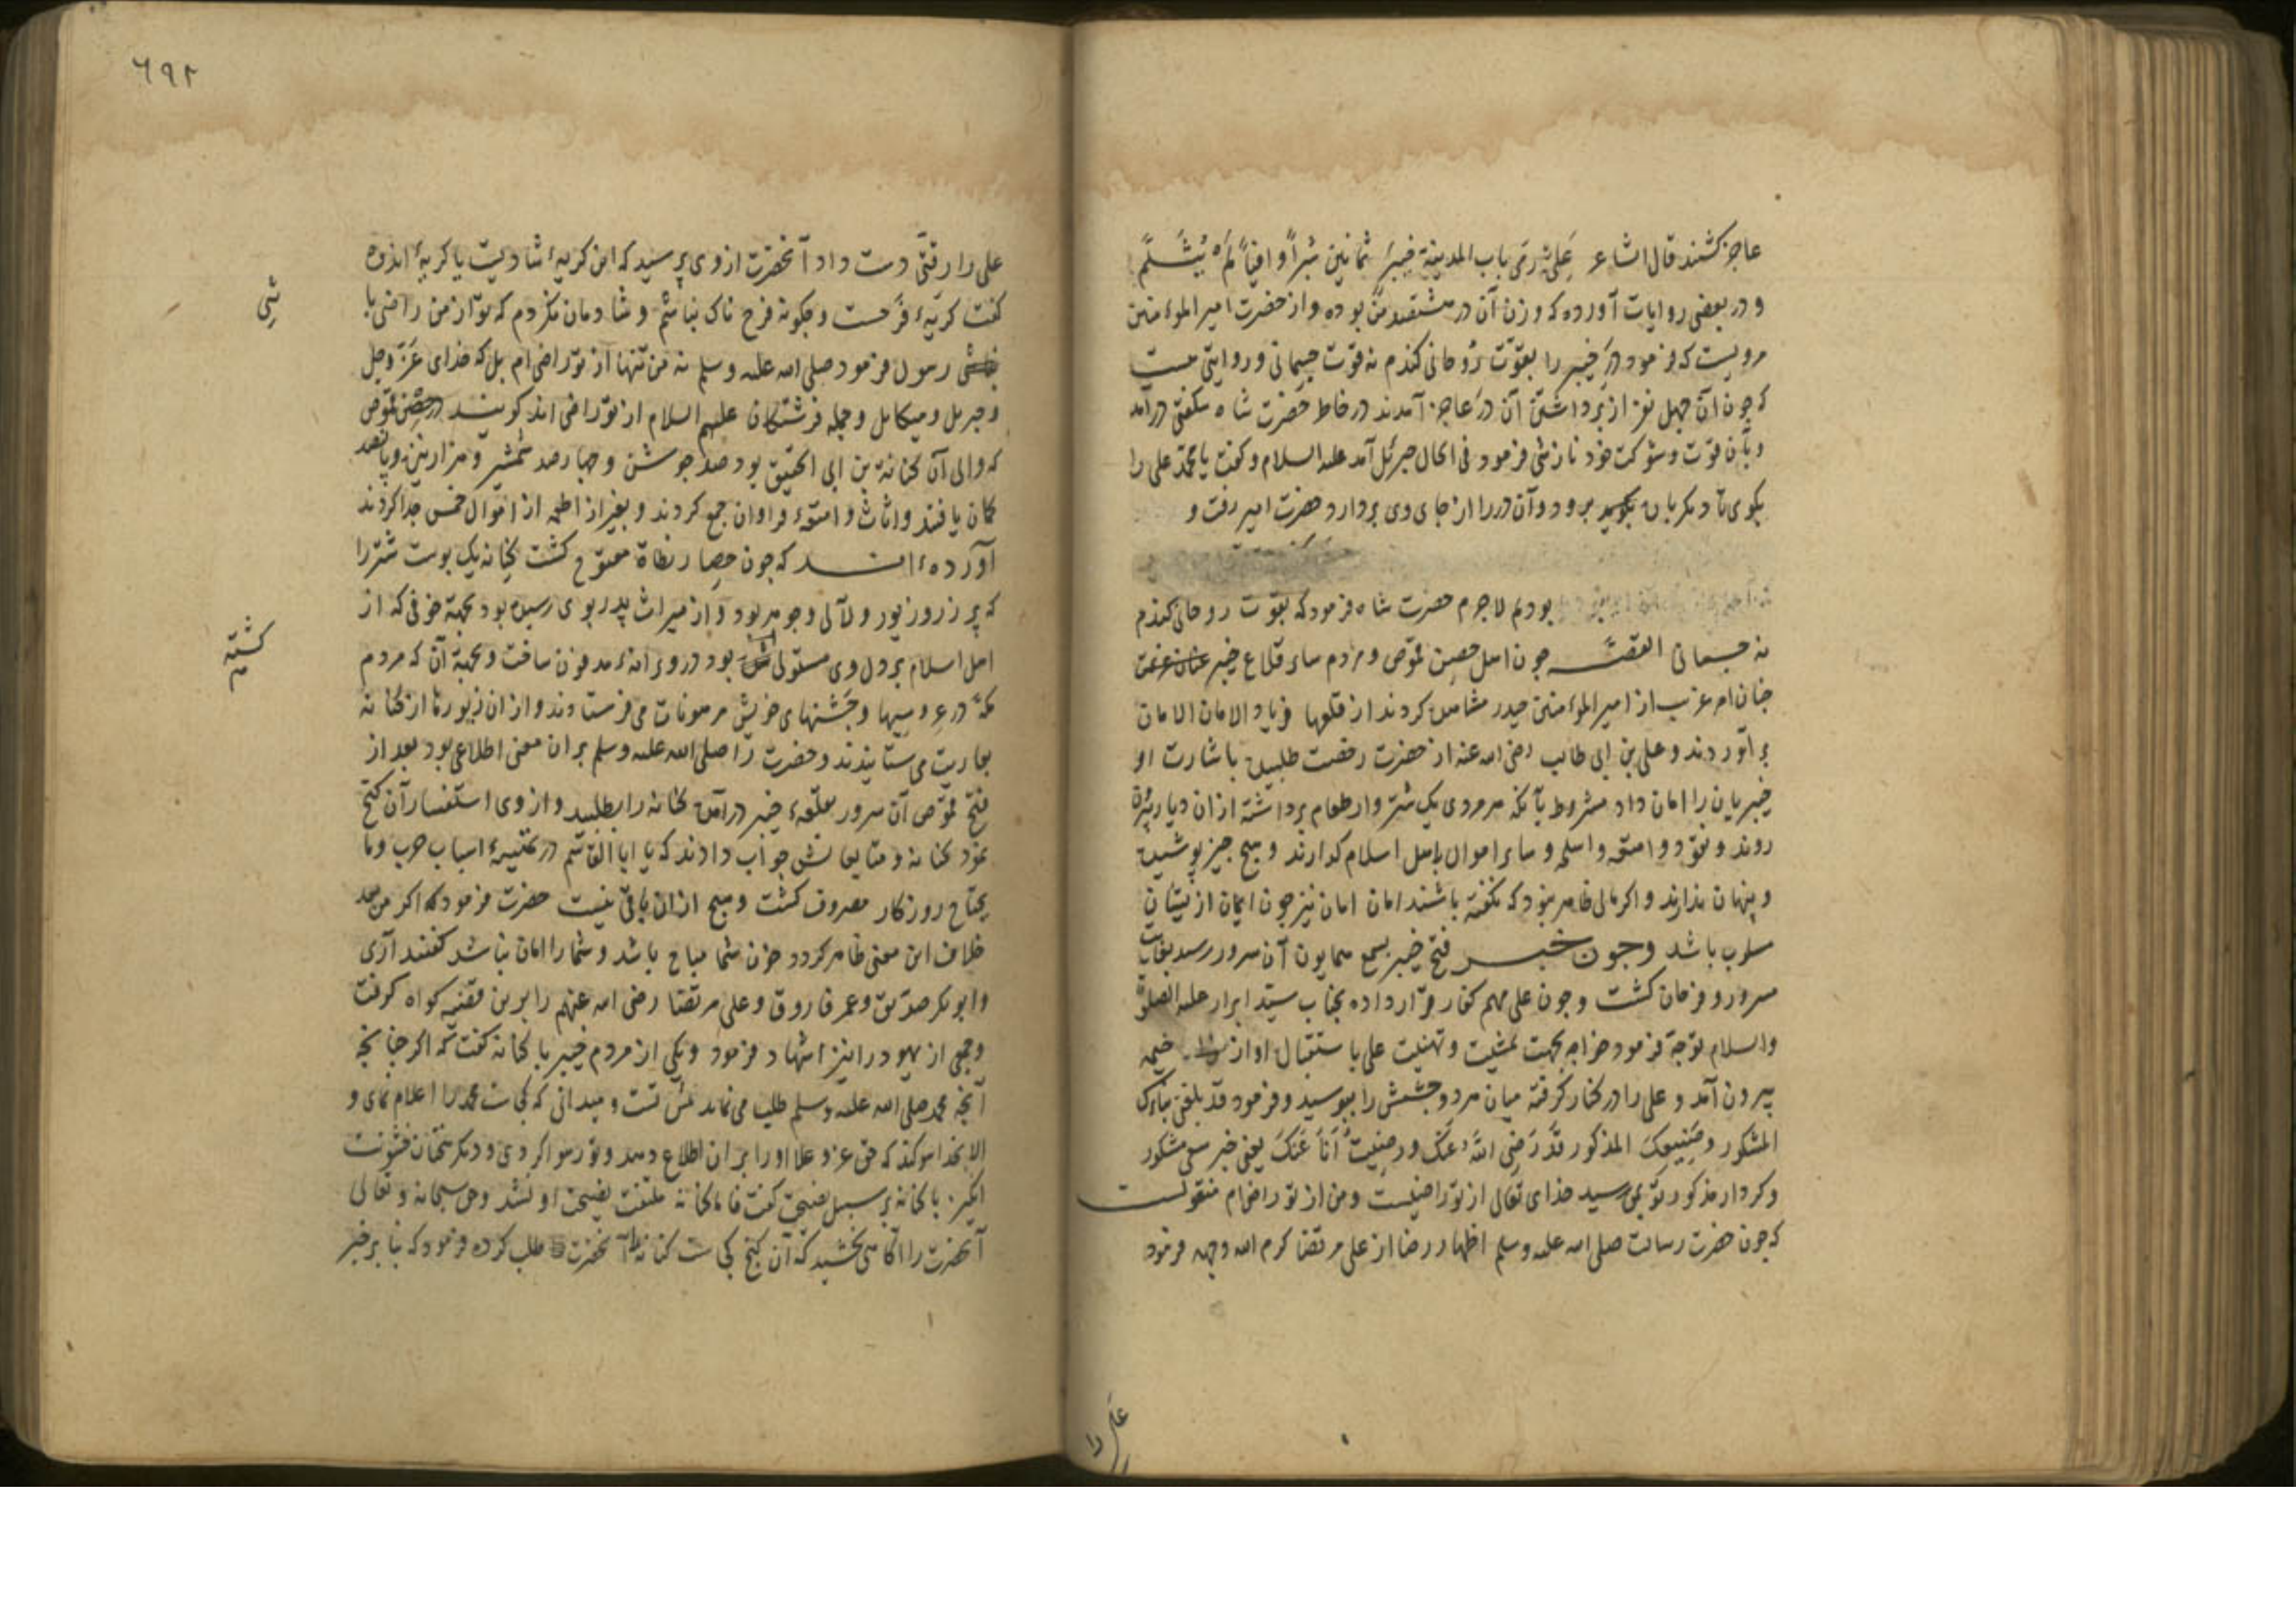 عاجز کشتند قال الشاعر عَلِیٌّ رَمَی باب المدینة خیبرَ ثمانین شبراً وافیاً لَم یُثَلَّم
و در بعضی روایات آورده که وزن آن در هشتصد من بوده و از حضرت امیر المؤمنین
مرویست که فرمود درِ خیبر را بقوّت رُوحانی کندم نه قوت جسمانی و روایتی هست
که چون آن چهل نفر از برداشتن آن درَ عاجز آمدند در خاطر حضرت شاه شکفتی درآمد
و بآن قوت و شوکت خود نازشی فرمود فی الحال جبرئل آمد علیه السلام و کفت یا محمّد علی را
بکوی تا دیکر بار برود و آن در را از جای وی بردارد حضرت امیر رفت و
بودم لاجرم حضرت شاه فرمود که بقوت روحانی کندم
نه جسمانی القصّه چون اهل حصِن قموص و مردم سایر قلاع خیبر
چنان امر غریب از امیر المؤمنین حیدر مشاهده کردند از قلعها فریاد الامان الامان
برآوردند و علی بن ابی طالب رضی الله عنه از حضرت رخصت طلبیده باشارت او
خیبریان را امان داد مشروط بآنکه هر مردی یک شتروار طعام برداشته از آن دیار بیرون
روند و نقود و امتعه و اسلحه و سایر اموال باهل اسلام کذارند و هیچ چیز پوشیده
و پنهان ندارند و اکر مالی ظاهر شود که نکفته باشند امان نیز چون ایمان از ایشان
مسلوب باشد وچون خبر فتح خیبر بسمع همایون آن سرور رسید بغایت
مسرور و فرحان کشت و چون علی مهم کفار قرار داده بجناب سیّد ابرار علیه الصلوة
والسلام توجّه فرمود خواجه بجهت تمشیت و تهنیت علی باستقبال او از خیمه
بیرون آمد و علی را در کنار کرفته میان هر دو چشمش را ببوسید و فرمود قد بلغنی نباءک
المشکور وصَنِیعکَ المذکور قَد رَضِیَ اللهُ عَنک ورضِیتُ اَنَا عَنکَ یعنی خبر سعی مشکور
و کردار مذکور تو بمن رسید خدای تعالی از تو راضیست و من از تو راضیم منقولست
که چون حضرت رسالت صلی الله علیه وسلم اظهار رضا از علی مرتضا کرم الله وجهه فرمود
علی را
٦٩٢
علی را رقتی دست داد آنحضرت از وی پرسید که این کریهٔ شادیست یا کریهٔ اندوه
کفت کریهٔ فرَحست و چکونه فرح ناک نباشم و شادمان نکردم که تو از من راضی با
شی
رسول فرمود صلی الله علیه وسلم نه من تنها از تو راضی ام بل که خدای عَزّ وجل
وجبریل ومیکایل وجمله فرشتکان علیهم السلام از تو راضی اند کویند در حصن قموص
که والی آن کنانة بن ابی الحقیق بود صد جوشن و چهارصد شمشیر و هزار نیزه و پانصد
کمان یافتند و اثاث و امتعهٔ فراوان جمع کردند و بغیر از اطعمه از اموال خمس جدا کردند
آورده اند که چون حصار نطاة مفتوح کشت کنانه یک پوست شتر را
که پر زر و زیور و لآلی و جوهر بود و از میراث پدر بوی رسیده بود بجهة خوفی که از
کشته
اهل اسلام بر دل وی مستولی شده بود در ویرانهٔ مدفون ساخت و بجهة آن که مردم
مکّه در عروسیها و جَشنهای خویش مرهونات می فرستادند و از آن زیورها از کنانه
بعاریت می ستانیدند و حضرت را صلی الله علیه وسلم بر آن معنی اطلاعی بود بعد از
فتح قموص آن سرور بقلعهٔ خیبر درآمده کنانه را بطلبید و از وی استفسار آن کنج
نمود کنانه و متابعانش جواب دادند که یا ابا القاسم در تهیهٔ اسباب حرب وما
یحتاج روزکار مصروف کشت و هیچ از آن باقی نیست حضرت فرمود که اکر من بعد
خلاف این معنی ظاهر کردد خون شما مباح باشد و شما را امان نباشد کفتند آری
وابو بکر صدّیق و عمر فاروق و علی مرتضا رضی الله عنهم را برین قضیه کواه کرفت
وجمعی از یهود را نیز اشهاد فرمود و یکی از مردم خیبر با کنانه کفت که اکر چنانچه
آنچه محمد صلی الله علیه وسلم طلب می نماید پیش تست و میدانی که کجاست محمد را اعلام نمای و
الا بخدا سوکند که حق عز و علا او را بر آن اطلاع دهد و تو رسوا کردی و دیکر سخنان خشونت
انکیز با کنانه بر سبیل نصیحت کفت فاما کنانه ملتفت نصیحت او نشد و حق سبحانه و تعالی
آنحضرت را آکاهی بخشید که آن کنج کجاست کنانه را آنحضرت طلب کرده فرمود که بنا بر خبر